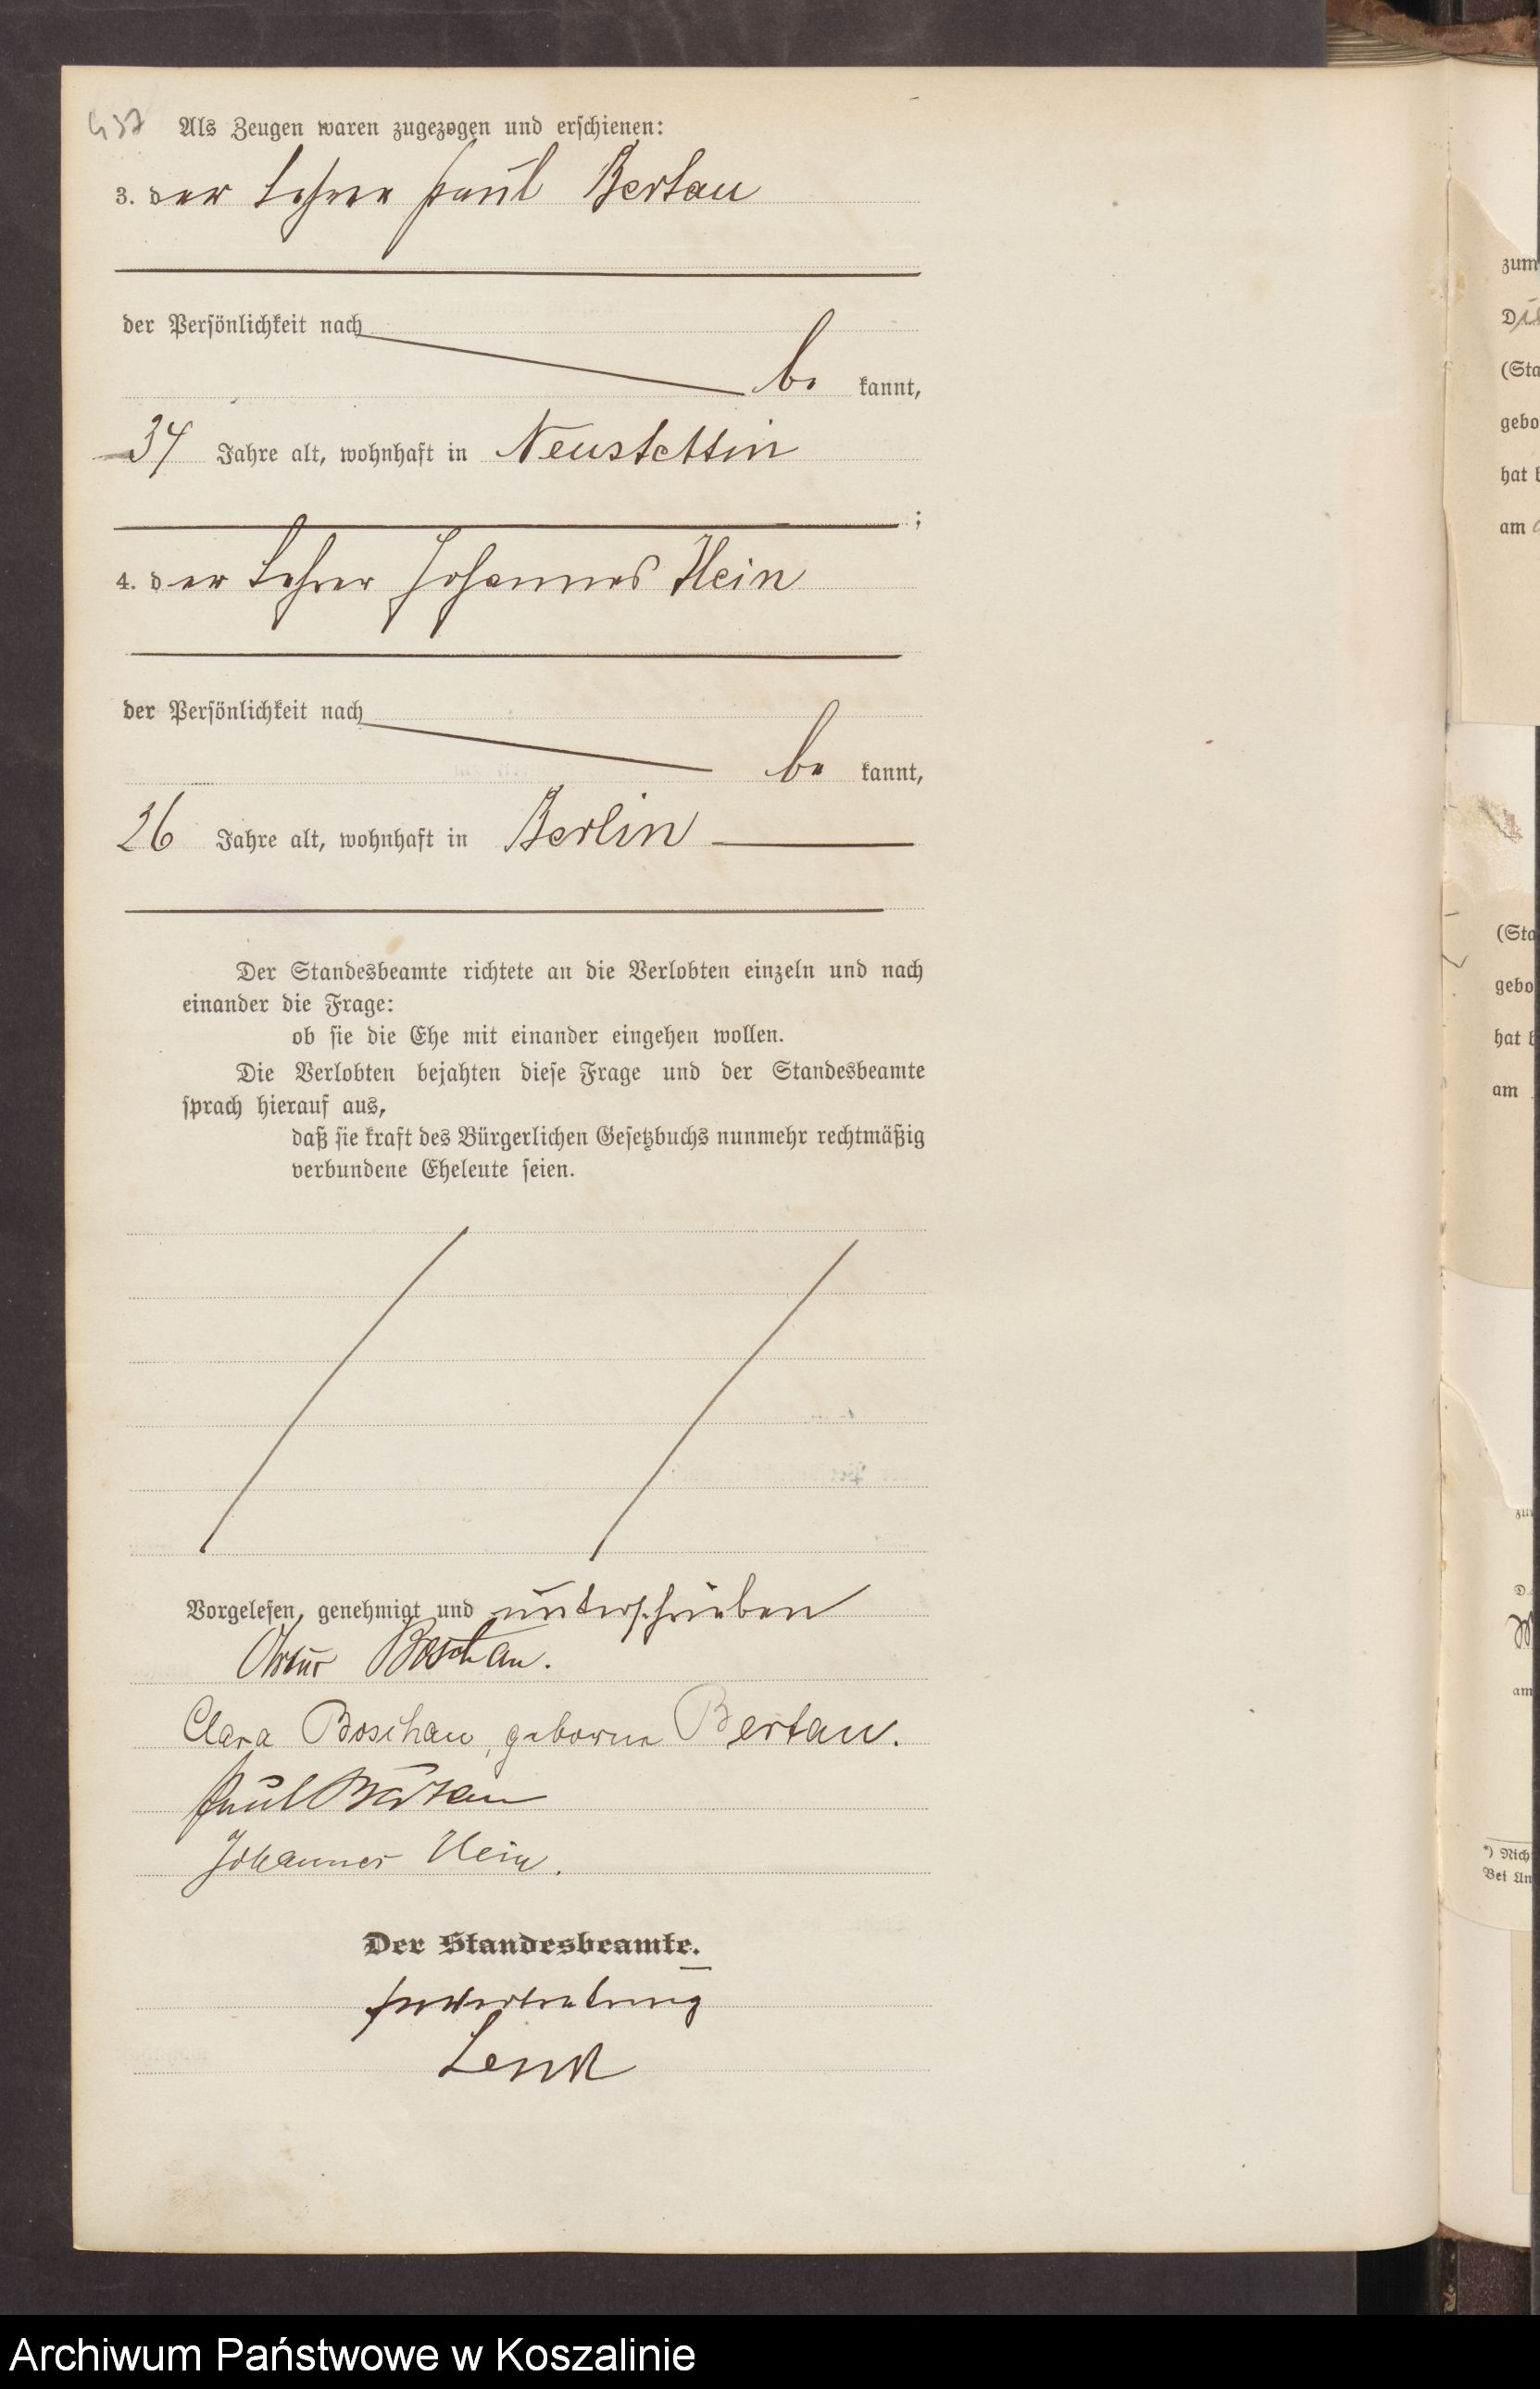 437 Als Zeugen waren zugezogen und erschienen:
3. der Lehrer Paul Bertau
der Persönlichkeit nach
be kannt,
34 Jahre alt, wohnhaft in Neustettin
;
4. der Lehrer Johannes Hein
der Persönlichkeit nach
be kannt,
26 Jahre alt, wohnhaft in Berlin
Der Standesbeamte richtete an die Verlobten einzeln und nach
einander die Frage:
ob sie die Ehe mit einander eingehen wollen.
Die Verlobten bejahten diese Frage und der Standesbeamte
sprach hierauf aus,
daß sie kraft des Bürgerlichen Gesetzbuchs nunmehr rechtmäßig
verbundene Eheleute seien.
Vorgelesen, genehmigt und unterschrieben
Boschan.
Clara Boschan, geborene Bertau.
Paul Bertau
Johannes Hein.
Der Standesbeamte.
In Vertretung
zum
(Sta
gebo
hat b
am
(Sta
gebo
hat b
am
am
*) Nich
Bei Un
Archiwum Państwowe w Koszalinie